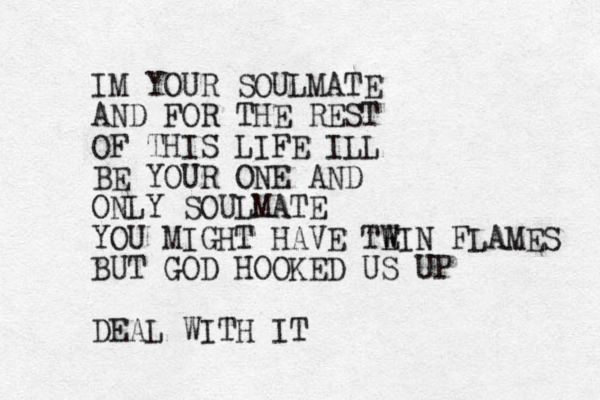 IM YOUR SOULMATE
AND FOR THE REST
OF THIS LIFE ILL
BE YOUR ONE AND
ONLY SOULMATE
YOU MIGHT HAVE TWIN FLAMES
BUT GOD HOOKED US UP
DEAL WITH IT